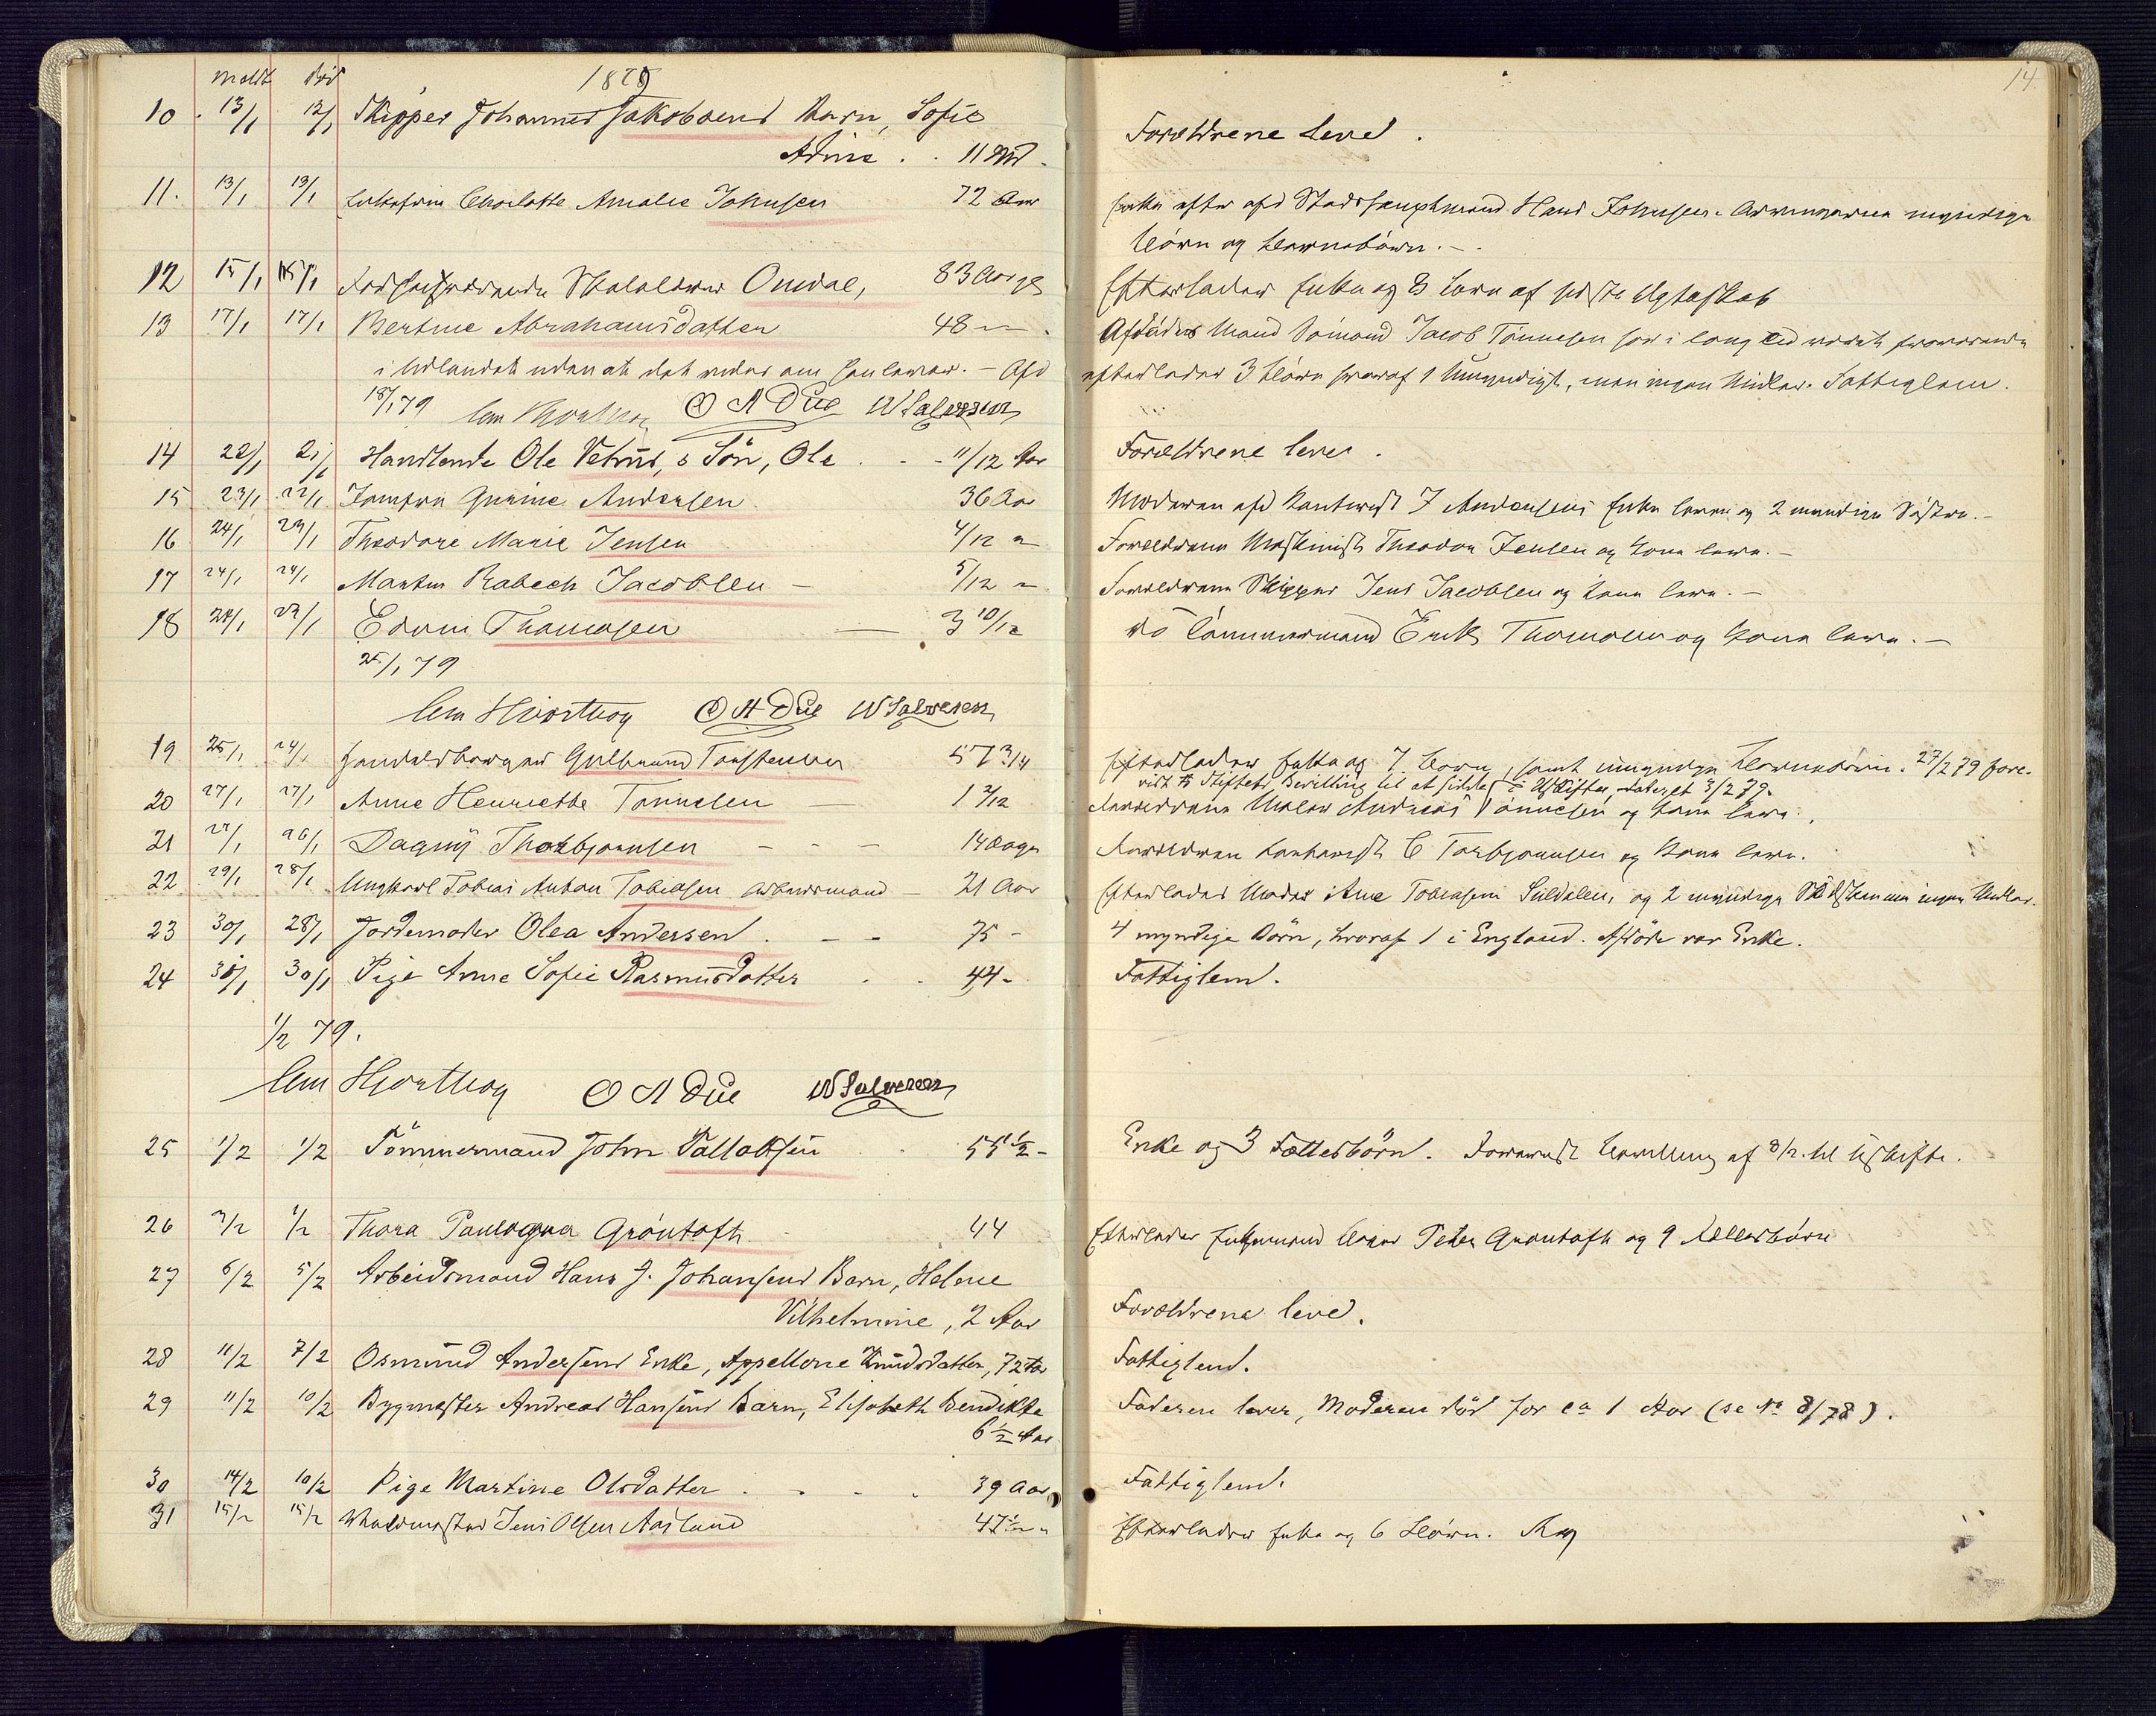 14
meldt Död 1879
10 13/1 12/1 Skipper Johannes Jakobsens Barn, Sofie
Adine . . 11 Md.
Forældrene leve.
11. 13/1 13/1 Charlotte Amalie Johnsen 72 Aar
Enke efter afd Hans Johnsen. myndige
Börn og Barnebörn.
12 15/1 15/1 Omdal, 83 Aar gl
Efterlader Enke og 3 Börn af sidste Ægteskab
13 17/1 17/1 Bertine Abrahamsdatter 48
Afdödes Mand Sömand Jacob Tönnesen har i lang Tid været fraværende
i Udlandet uden at det vides om han lever. - Afd
efterlader 3 Börn hvoraf 1 Umyndigt, men ingen Midler. Fattiglem.
18/1 79 O A Due W Salvesen
14 22/1 21/1 Handlende Ole Vetrus, s Sön, Ole . . - 11/12 Aar
Forældrene lever.
15 23/1 22/1 Jomfru Gurine Andersen 36 Aar
Moderen afd Andersens Enke lever og 2 myndige Söstre.
16 24/1 23/1 Theodore Marie Jensen 4/12
Forældrene Maskinist Theodor Jensen og Kone leve. -
17 24/1 24/1 Martin Rabech Jacobsen - 5/12
Forældrene Skipper Jens Jacobsen og Kone leve. -
18 24/1 23/1 Edvin Thomasen 3 10/12
do Tömmermand Erik Thomasen og Kone leve. -
25/1 79
Hjorthog O A Due W Salvesen
19 25/1 24/1 Gulbrand Torstensen 57 3/4
Efterlader Enke og 7 Börn, samt umyndige Barnebörn. 27/2 79 fore-
vist Stiftets Bevilling til at sidde i uskiftet, dateret 3/2 79.
20 27/1 27/1 Anne Henriette Tönnesen 1 2/12
Forældrene Maler Andreas Tönnesen og Kone leve.
21 27/1 26/1 Dagny Thorbjörnsen - - - 14 Dage
Forældrene C Torbjörnsen og Kone leve.
22 29/1 28/1 Ungkarl Tobias Anton Tobiasen Arbeidsmand - 21 Aar
Efterlader Moder Ane Tobiasen og 2 myndige Södskende men ingen Midler.
23 30/1 28/1 Jordemoder Olea Andersen . - - 75 -
4 myndige Börn, hvoraf 1 i England. Afdöde var Enke.
24 30/1 30/1 Pige Anne Sofie Rasmusdatter . . 44 -
Fattiglem.
1/2 79.
Hjorthog O A Due W Salvesen
25 1/2 1/2 Tömmermand John Tallaksen . . 55 1/2 -
Enke og 3 Fællesbörn. Forevist Bevilling af 8/2. til Uskifte.
26 3/2 1/2 Thora Gröntoft 44
Efterlader Enkemand Peter Gröntoft og 9 Fællesbörn
27 6/2 5/2 Arbeidsmand Hans J. Johansens Barn, Helene
Vilhelmine, 2 Aar
Forældrene leve.
28 11/2 7/2 Osmund Andersens Enke, Appellone Knudsdatter, 72 Aar
Fattiglem.
29 11/2 10/2 Bygmester Andreas Hansens Barn, Elisabeth Bendikte
6 1/2 Aar
Faderen lever, Moderen död for ca 1 Aar (se No 8/78).
30 14/2 10/2 Pige Martine Olsdatter . . . . 39 Aar
Fattiglem.
31 15/2 15/2 Jens Olsen Aasland 47 1/2
Efterlader Enke og 6 Börn.